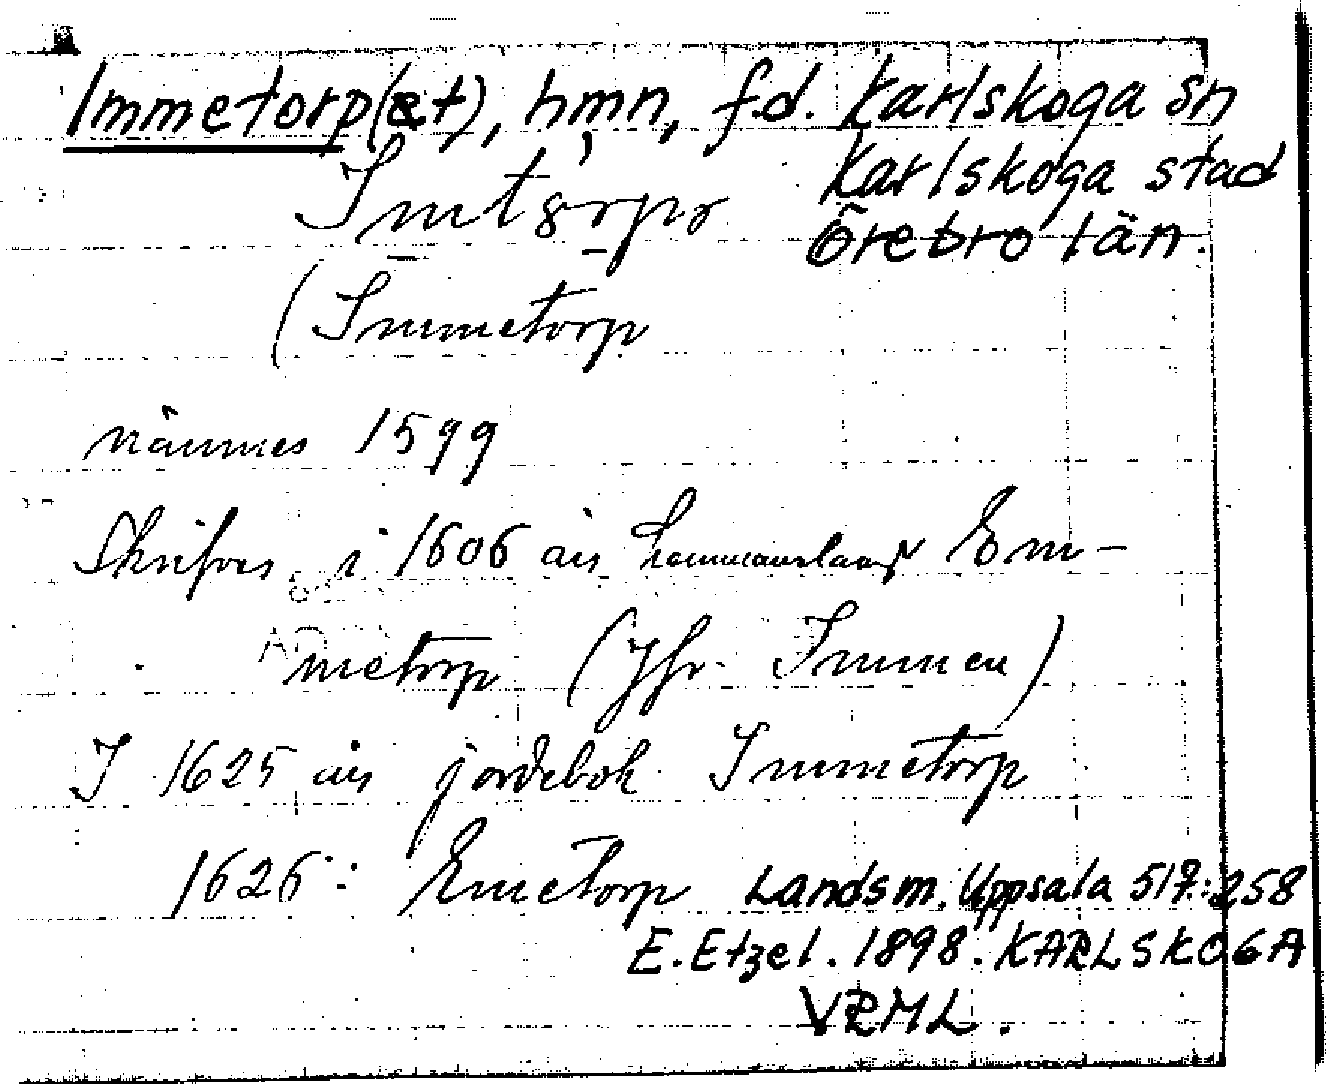 Immetorp(et), hmn, fd. Karlskoga sn
Karlskoga stad
Örebro län.
(Immetorp
nämnes 1599
Skrifves i 1606 års Em-
metorp (Jfr. Immen)
I 1625 års jordebok Immetorp
1626: Emetorp Landsm. Uppsala 517:258
E. Etzel. 1898. KARLSKOGA
VRML.